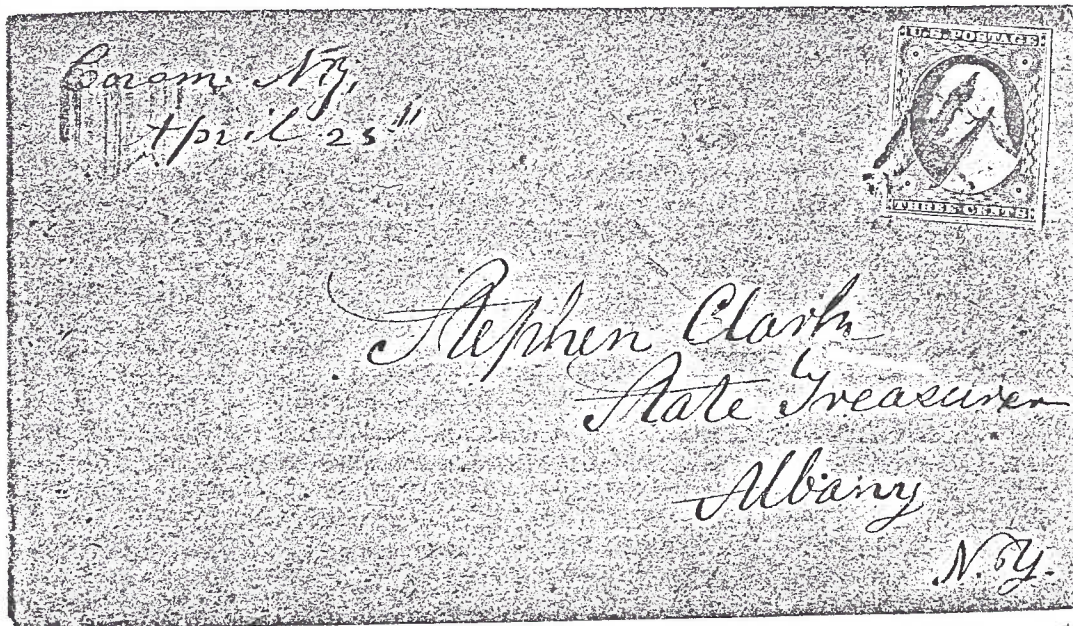 Coram N.Y.
April 25"
U.S. POSTAGE
THREE CENTS
Stephen Clark
State Treasurer
Albany
N.Y.